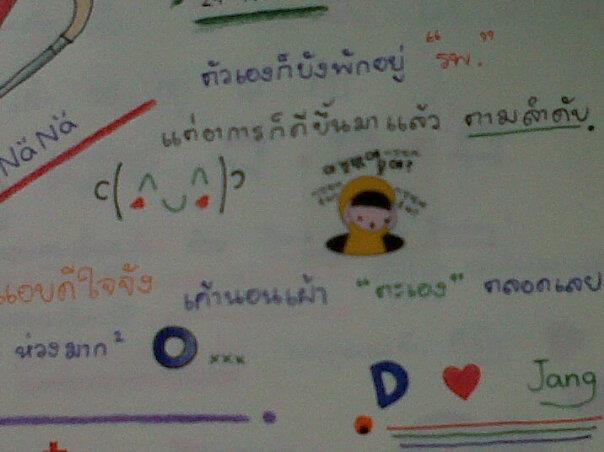 ตัวเองก็ยังพักอยู่ "รพ."
แต่อาการก็ดีขึ้นมาแล้ว ตามลำดับ.
NäNä
แอบดีใจจัง
เค้านอนเฝ้า "ตะเอง" ตลอดเลย
ห่วงมาก²
O...xxx
D ♥ Jang